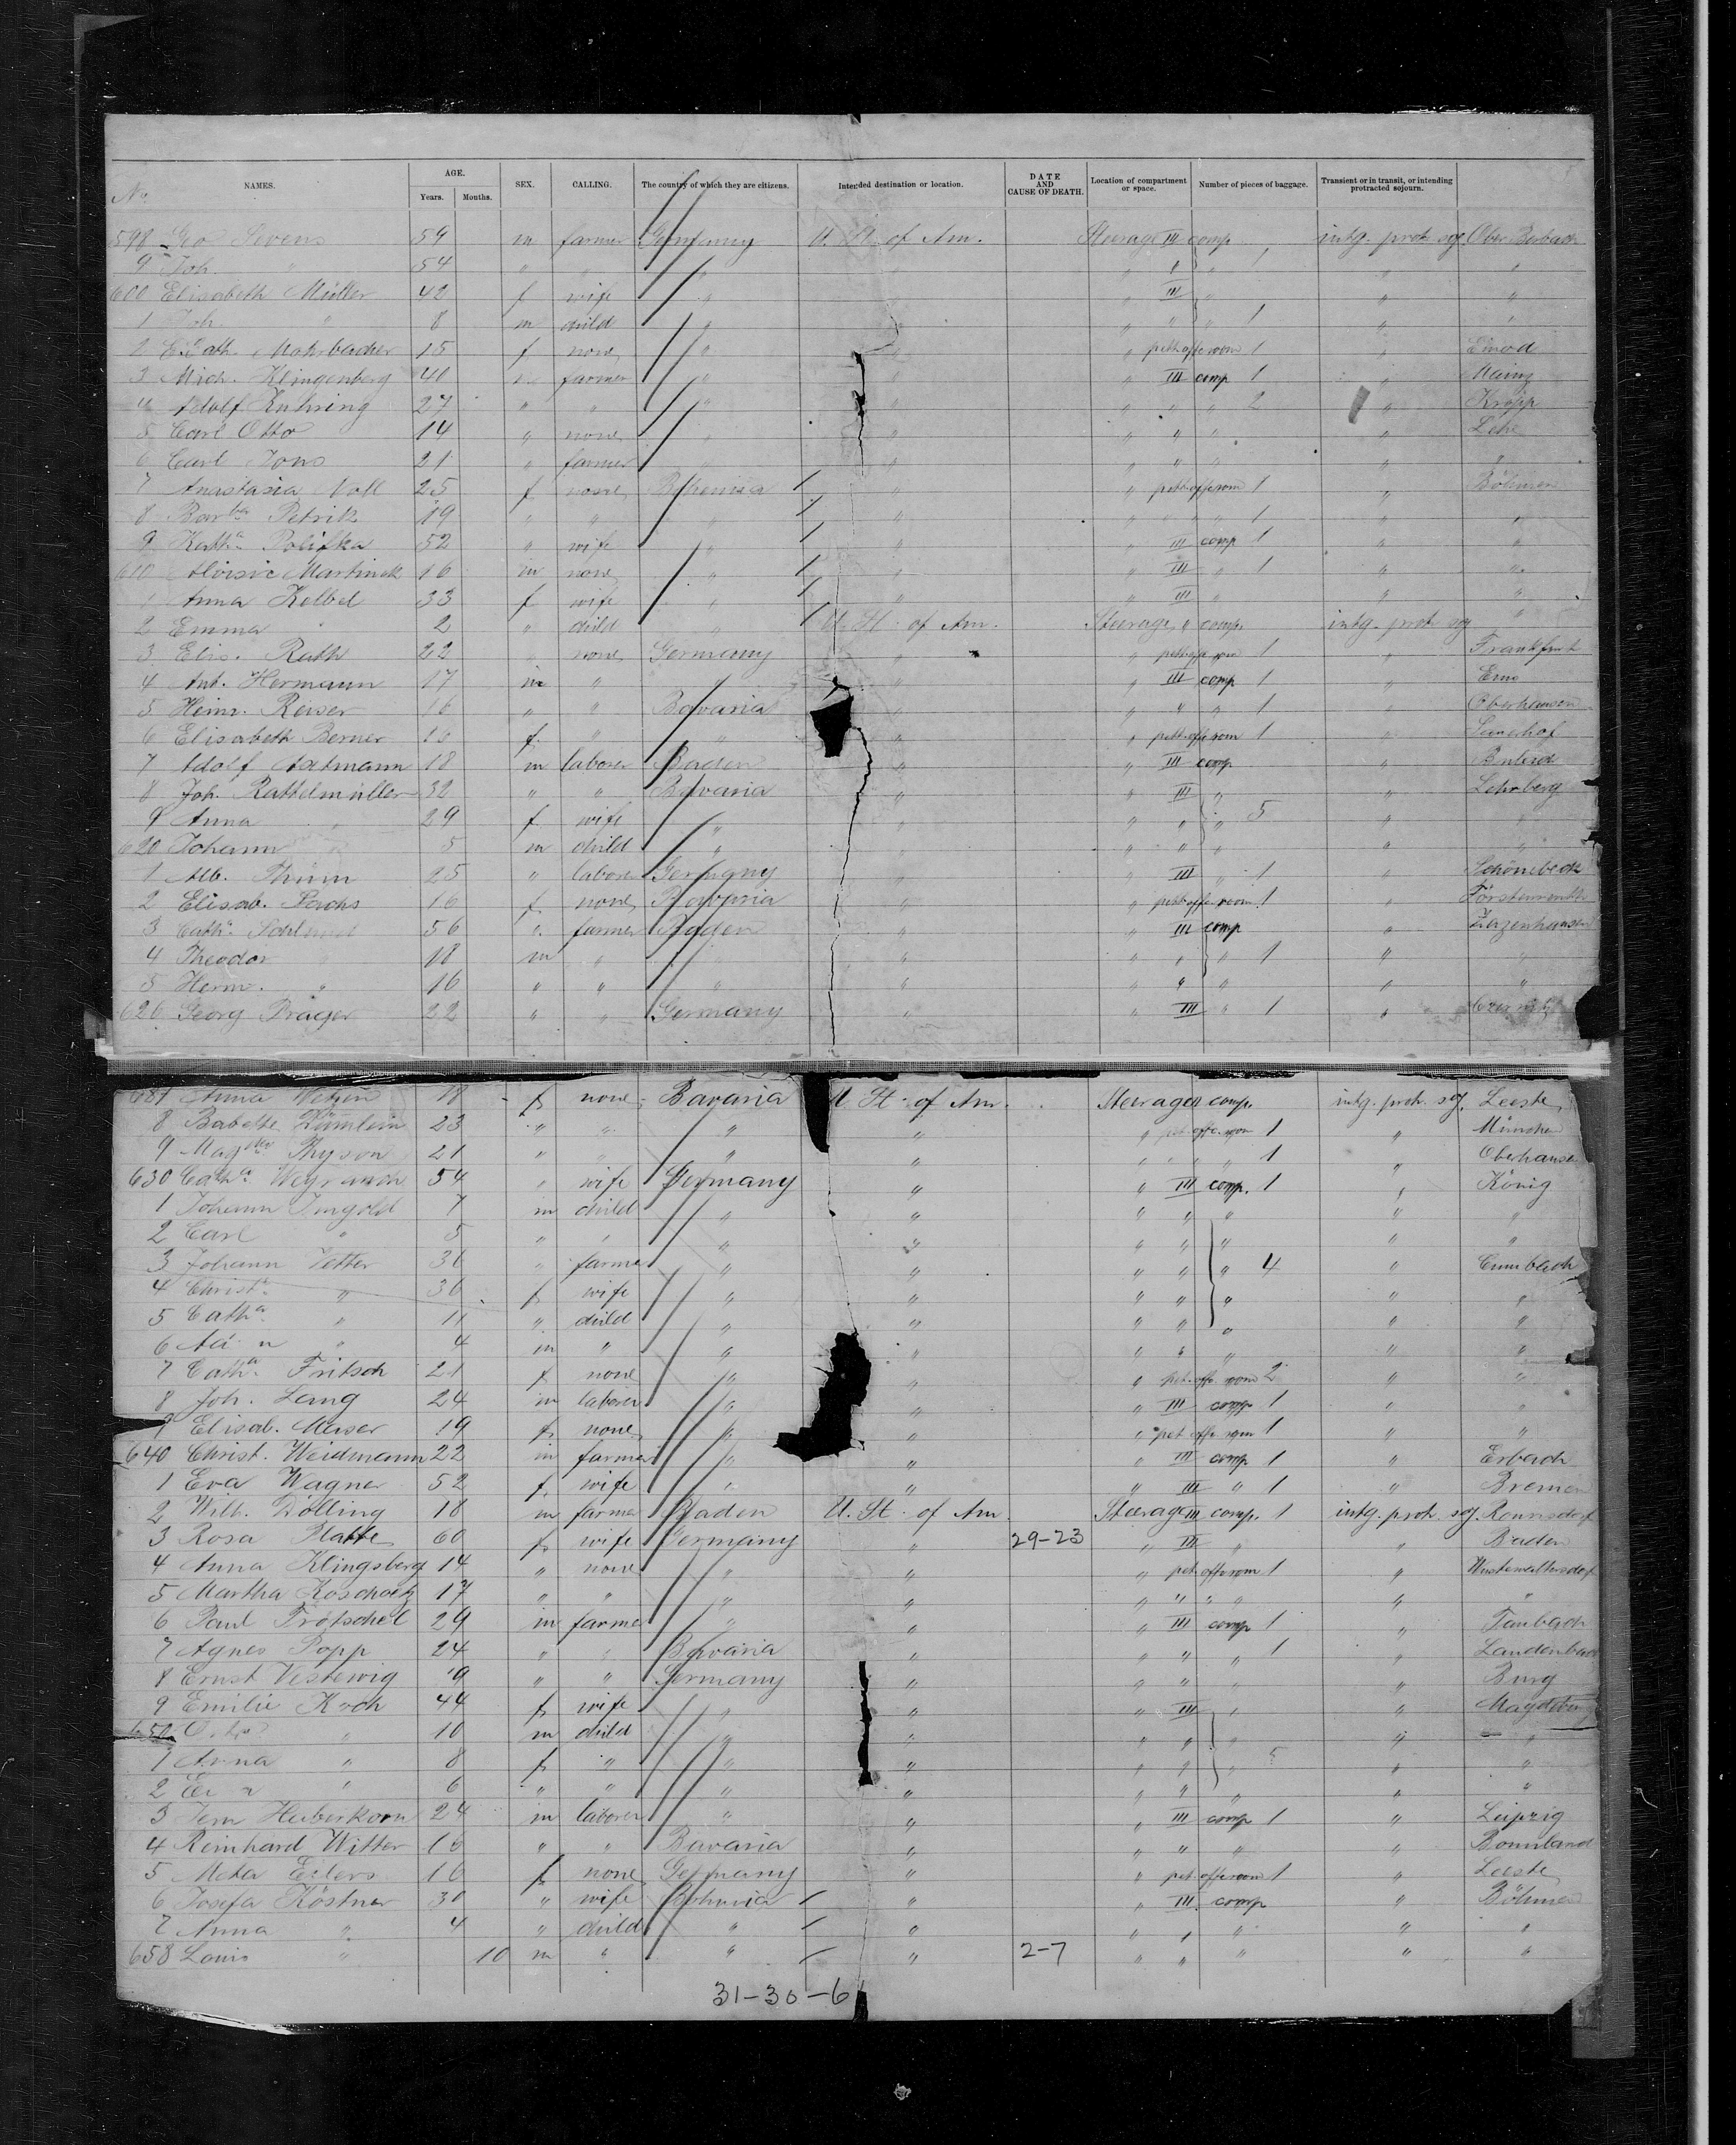 No. NAMES. AGE. Years. Months. SEX. CALLING. The country of which they are citizens. Intended destination or location. DATE AND CAUSE OF DEATH. Location of compartment or space. Number of pieces of baggage. Transient or in transit, or intending protracted sojourn.
598 Geo Sevens 59 m farmer Germany U. St. of Am. Steerage III comp intg. proh. soj. Ober Berbach
9 Joh. " 54 " " " " " " 1 " "
600 Elisabeth Müller 42 f wife " " III " " "
1 Joh. " 8 m child " " " " " 1 " "
2 Cath. Mohrbacher 15 f none " " " 1 " Einod
3 Mich. Klingenberg 40 m farmer " " " III comp 1 " Mainz
4 Adolf Kuhring 27 " " " " " " " 2 " Kropp
5 Carl Otto 14 " none " " " " " " Lehe
6 Carl Jons 21 " farmer " " " " " "
7 Anastasia Noll 25 f none Bohemia " " 1 " Böhmen
8 Barba Petrik 19 " " " " " " " 1 " "
9 Katha Polifka 52 " wife " " " III comp 1 " "
610 Aloisie Martinek 16 m none " " " III " 1 " "
1 Anna Kelbel 33 f wife " " " III " " "
2 Emma " 2 " child " U. St. of Am. Steerage " comp. intg. proh soj "
3 Elis. Rath 22 " none Germany " " 1 " Frankfurt
4 Ant. Hermann 17 m " " " " III comp 1 " Ems
5 Heinr. Reiser 16 " " Bavaria " " " " 1 " Oberhausen
6 Elisabeth Berner f. " " " " 1 " Sandhof
7 Adolf Axtmann 18 m laborer Baden " " III comp "
8 Joh. Rattelmüller 32 " " Bavaria " " III " " Lehrberg
9 Anna " 29 f wife " " " " " 5 " "
620 Johann 5 m child " " " " " " "
1 Alb. Thum 25 " laborer Germany " " III " 1 " Schönebeck
2 Elisab. Sachs 16 f none Bavaria " " 1 "
3 Catha 56 " farmer Baden " " III comp " Zazenhausen
4 Theodor " 18 m " " " " " " 1 " "
5 Herm. " 16 " " " " " " " " "
626 Georg Prager 22 " " Germany " " III " 1 "
Anna 18 f none Bavaria U. St. of Am. Steerage comp. intg. proh. soj. Leeste
8 Babette Kümlein 23 " " " " " 1 " München
9 Magdna Thyson 21 " " " " " " " 1 " Oberhause
630 Catha Weyrauch 54 " wife Germany " " III comp. 1 " König
1 Johann Ingold 7 m child " " " " " " "
2 Carl " 5 " " " " " " " " "
3 Johann Vetter 36 " farmer " " " " " 4 " Cumbach
4 Christa " 36 f wife " " " " " " "
5 Catha " 11 " child " " " " " " "
6 " 4 m " " " " " " " "
7 Catha Fritsch 21 f none " " " 2 " "
8 Joh. Lang 24 m laborer " " " III comp 1 " "
9 Elisab. Meser 19 f none " " " 1 " "
640 Christ. Weidmann 22 m farmer " " " III comp 1 " Erbach
1 Eva Wagner 52 f wife " " " III " 1 " Bremen
2 Wilh. Dölling 18 m farmer Baden U. St. of Am. Steerage III comp. 1 intg. proh. soj. Ronnsdorf
3 Rosa Platte 60 f wife Germany " 29-23 " III " " Baden
4 Anna Klingsberg 14 " none " " " 1 " Wustewaltersdorf
5 Martha Koschoez 17 " " " " " " " " " "
6 Paul Trötschel 29 m farmer " " " III comp 1 " Taubach
7 Agnes Popp 24 " " Bavaria " " " " 1 " Laudenbach
8 Ernst Vestewig 19 " " Germany " " " " " Burg
9 Emilie Koch 44 f wife " " " III " " Magdeburg
650 " 10 m child " " " " " " "
1 Anna " 8 f " " " " " " 5 " "
2 " 6 " " " " " " " " "
3 Haberkorn 24 m laborer " " " III comp 1 " Leipzig
4 Reinhard Witter 16 " " Bavaria " " " " " Bonnland
5 Meta Eilers 16 f none Germany " " 1 " Leeste
6 Josefa Köstner 30 " wife Bohemia " " III comp " Böhmen
7 Anna " 4 " child " " " " " " "
658 Louis " 10 m " " " 2-7 " " " " "
31-30-6